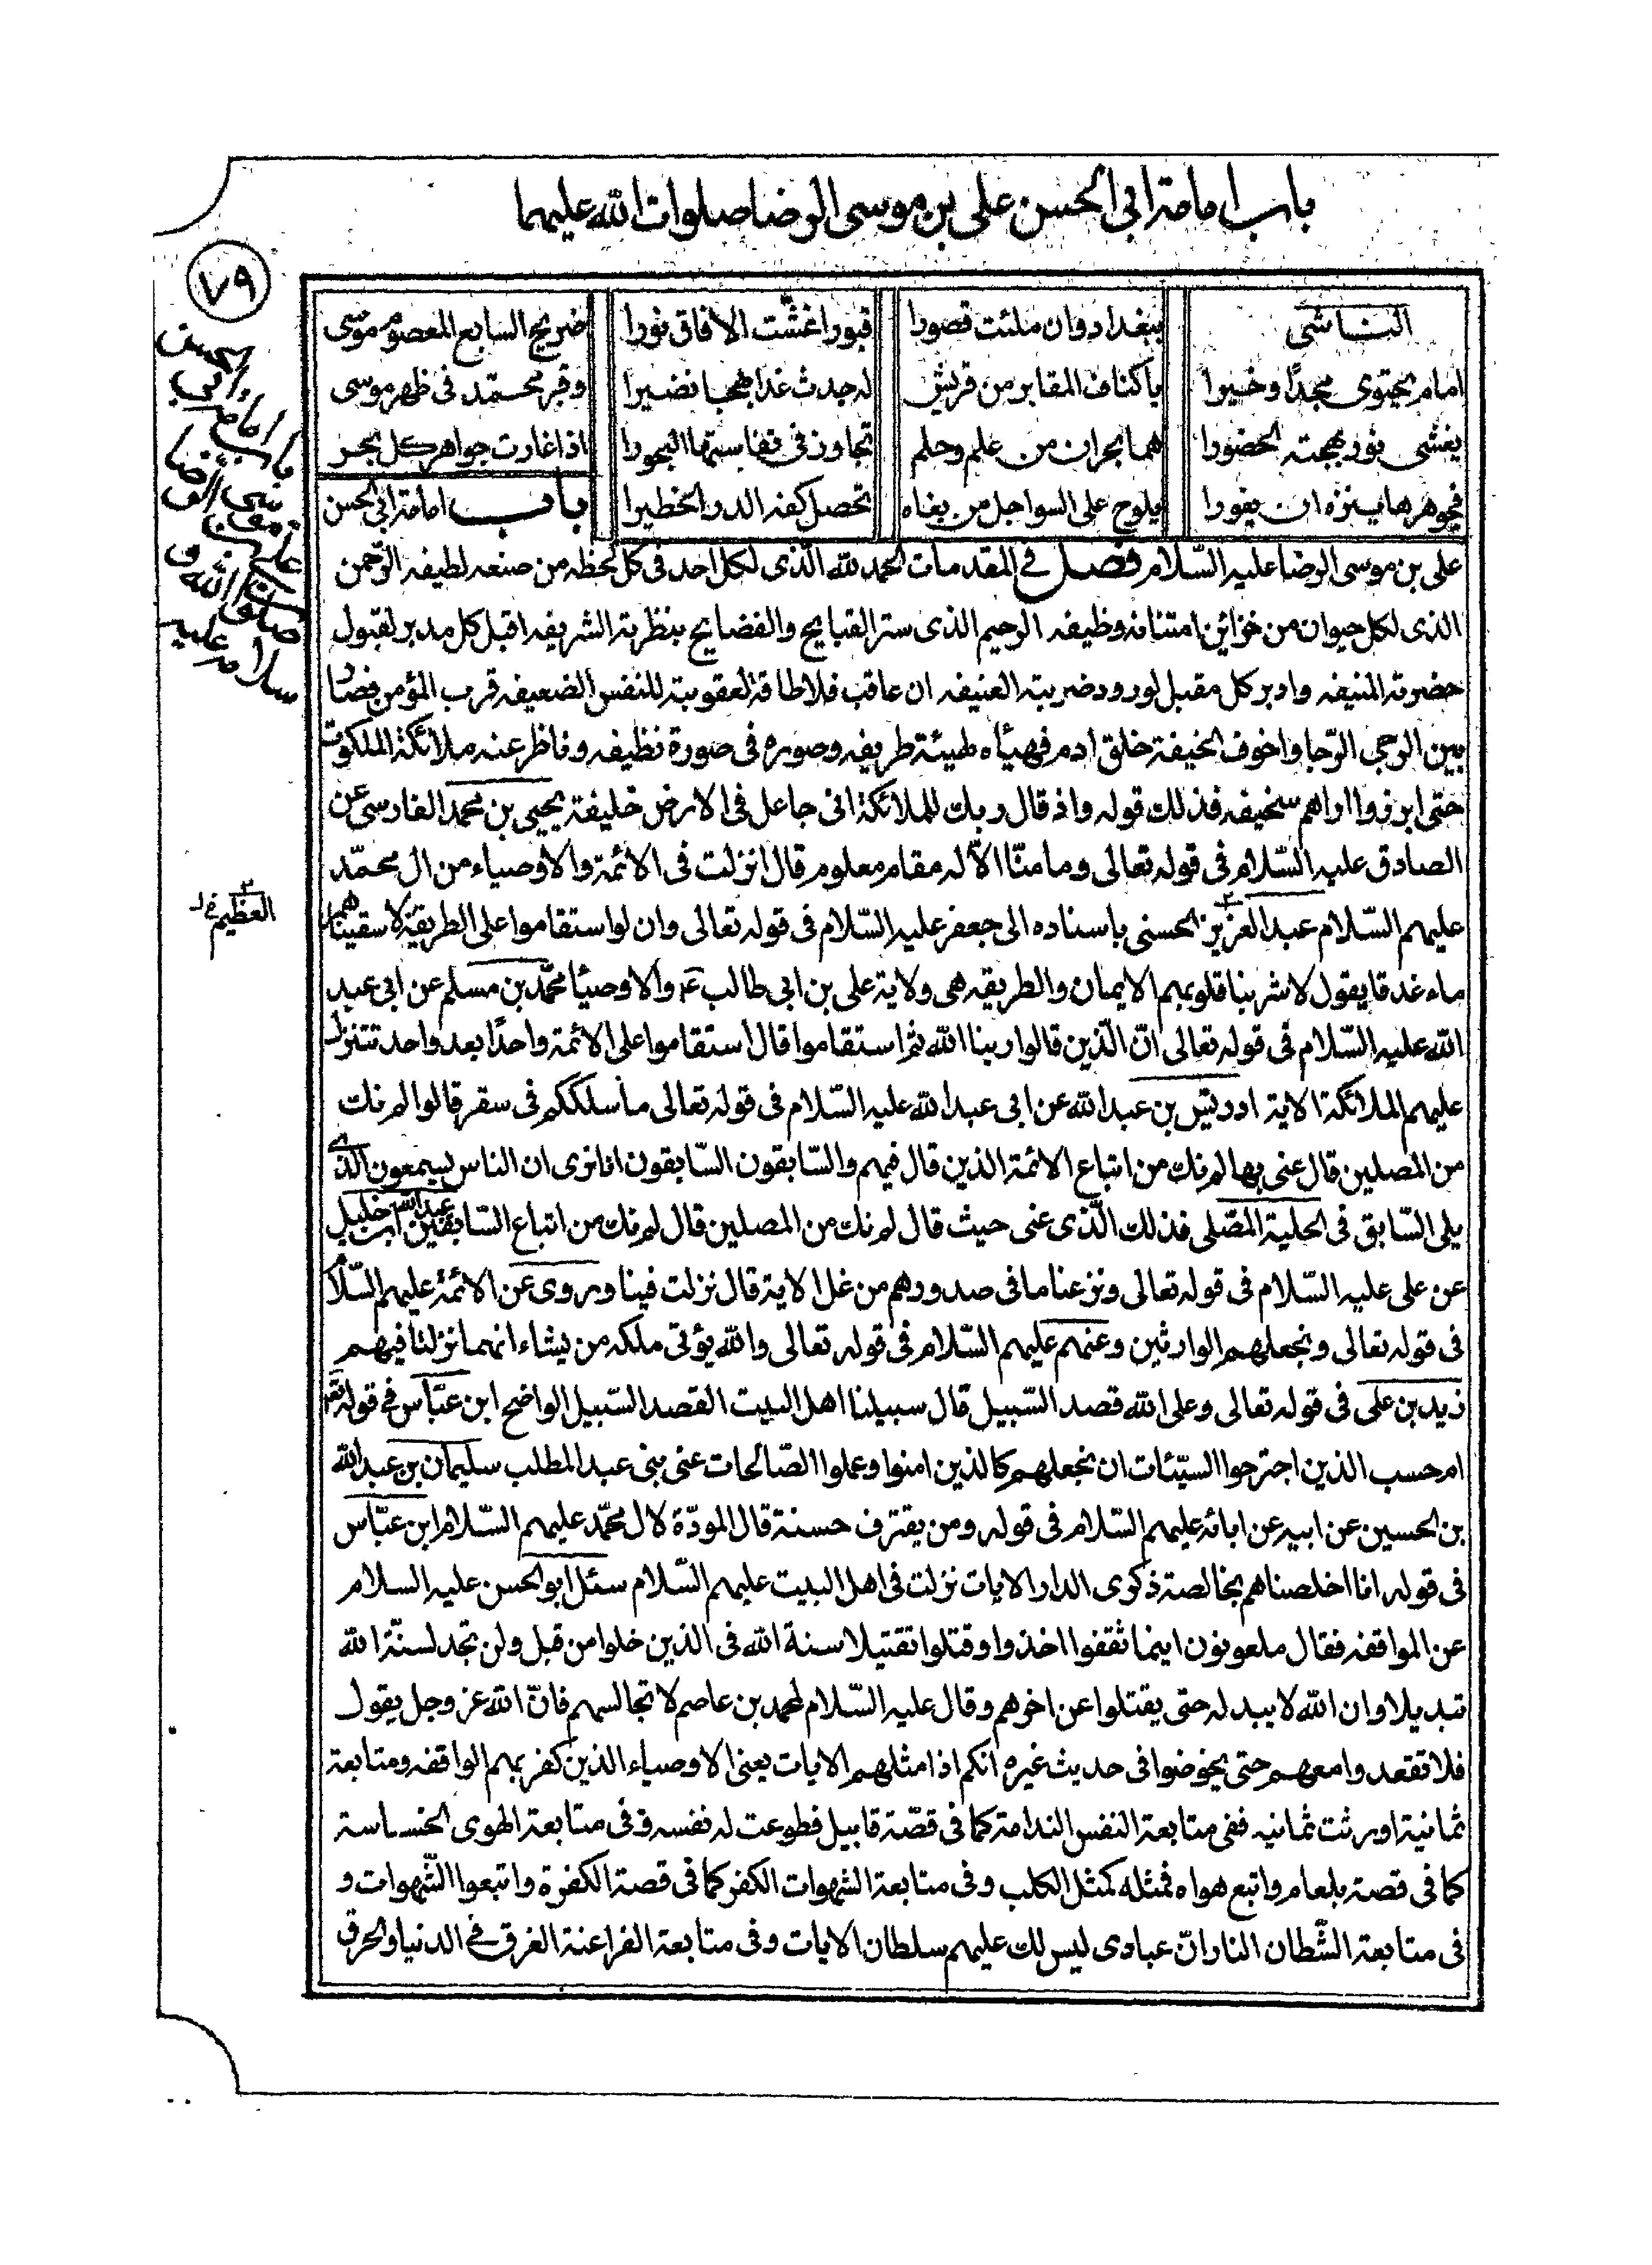 باب امامة ابي الحسن علي بن موسى الرضا صلوات الله عليهما
٧٩
باب امامة ابي الحسن
علي بن موسى الرضا
صلوات الله و
سلامه عليه
الناشي ببغداد وان ملئت قصورا قبورا غشّت الافاق نورا ضريح السابع المعصوم موسى
امام يحتوى مجدًا وخيرا باكناف المقابر من قريش له جدث غدا بهجا نضيرا وقبر محمّد فى ظهر موسى
يغشى نور بهجته الحضورا هما بحران من علم وحلم تجاوز فى نفاستها البحورا اذا غارت جواهر كل بحر
فجوهرها ينزه ان يغورا يلوح على السواحل من بغاه تحصل كفه الدر الخطيرا باب امامة ابى الحسن
على بن موسى الرضا عليه السّلام فصل في المقدمات الحمد لله الّذى لكل احد فى كل لحظه من صنعه لطيفه الرّحمن
الذى لكل حيوان من خزائن امتنانه وظيفه الرحيم الذى ستر القبايح والفضايح بنظرته الشريفه اقبل كل مدبر لقبول
حضرته المنيفه وادبر كل مقبل لورود ضربته العنيفه ان عاقب فلا طاقة لعقوبته للنفس الضعيفه قرب المؤمن فصار
بين الوحى الرّجا واخوف الخيفة خلق ادم فهيّاه بهيئة طريفه وصوره فى صورة نظيفه وناظر عنه ملائكة الملكوت
حتى ابرزوا اراهم سخيفه فذلك قوله واذ قال ربك للملائكة انى جاعل فى الارض خليفة يحيى بن محمد الفارسى عن
الصادق عليه السّلام فى قوله تعالى وما منّا الّا له مقام معلوم قال انزلت فى الائمة والاوصياء من ال محمّد
عليهم السّلام عبد العزيز الحسنى باسناده الى جعفر عليه السّلام فى قوله تعالى وان لو استقاموا على الطريقة لاسقيناهم
العظيم خ ل
ماء غدقا يقول لاشربنا قلوبهم الايمان والطريقه هى ولاية على بن ابى طالب ع والاوصيا محمّد بن مسلم عن ابى عبد
الله عليه السّلام فى قوله تعالى انّ الّذين قالوا ربنا الله ثم استقاموا قال استقاموا على الائمة واحدًا بعد واحد تتنزل
عليهم الملائكة الاية ادريس بن عبد الله عن ابى عبد الله عليه السّلام فى قوله تعالى ما سلككم فى سقر قالوا لم نك
من المصلين قال عنى بها لم نك من اتباع الائمة الذين قال فيهم والسّابقون السّابقون اما ترى ان الناس يسمعون الذى
يلى السّابق فى الحلية المصّلى فذلك الّذى عنى حيث قال لم نك من المصلين قال لم نك من اتباع السّابقين عبد الله بن خليل
عن على عليه السّلام فى قوله تعالى ونزعنا ما فى صدورهم من غل الاية قال نزلت فينا وروى عن الائمة عليهم السّلام
فى قوله تعالى ونجعلهم الوارثين وعنهم عليهم السّلام فى قوله تعالى والله يؤتى ملكه من يشاء انهما نزلتا فيهم
زيد بن على فى قوله تعالى وعلى الله قصد السّبيل قال سبيلنا اهل البيت القصد السّبيل الواضح ابن عبّاس فى قوله تع
ام حسب الذين اجترحوا السيّئات ان نجعلهم كالذين امنوا وعملوا الصّالحات عنى بنى عبد المطلب سليمان بن عبد الله
بن الحسين عن ابيه عن ابائه عليهم السّلام فى قوله ومن يقترف حسنة قال المودّة لال محمّد عليهم السّلام ابن عبّاس
فى قوله انا اخلصناهم بخالصة ذكرى الدار الايات نزلت فى اهل البيت عليهم السّلام سئل ابو الحسن عليه السلام
عن الواقفه فقال ملعونون اينما ثقفوا اخذوا وقتلوا تقتيلا سنة الله فى الذين خلوا من قبل ولن تجد لسنّة الله
تبديلا وان الله لا يبدله حتى يقتلوا عن اخرهم وقال عليه السّلام لمحمد بن عاصم لا تجالسهم فانّ الله عز وجل يقول
فلا تقعدوا معهم حتى يخوضوا فى حديث غيره انكم اذا مثلهم الايات يعنى الاوصياء الذين كفر بهم الواقفه ومتابعة
ثمانية اورثت ثمانيه ففى متابعة النفس الندامة كما فى قصّة قابيل فطوعت له نفسه وفى متابعة الهوى الخساسة
كما فى قصة بلعام واتبع هواه فمثله كمثل الكلب وفى متابعة الشهوات الكفر كما فى قصة الكفرة واتبعوا الشّهوات و
فى متابعة الشّطان النار انّ عبادى ليس لك عليهم سلطان الايات وفى متابعة الفراعنة الغرق فى الدنيا والحرق